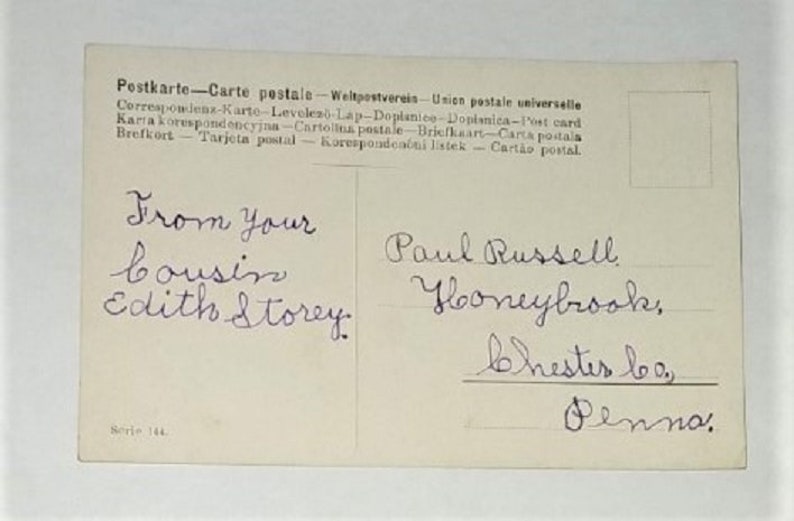 Postkarte—Carte postale—Weltpostverein—Union postale universelle
Correspondenz-Karte—Levelező-Lap—Dopisnice—Dopisnica—Post card
Karta korespondencyjna—Cartolina postale—Briefkaart—Carta postala
Brefkort — Tarjeta postal — Korespondenční lístek — Cartão postal.
From Your
Cousin
Edith Storey.
Paul Russell
Honeybrook,
Chester Co,
Penna.
Serie 144.